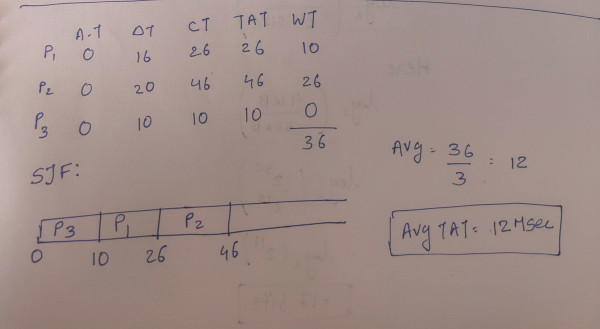 A.T ΔT CT TAT WT
P1 0 16 26 26 10
P2 0 20 46 46 26
P3 0 10 10 10 0
36
Avg = 36/3 = 12
SJF:
P3 P1 P2
0 10 26 46
Avg TAT = 12 Msec